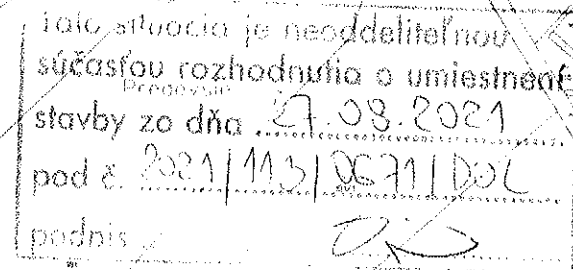 Táto situácia je neoddeliteľnou
súčasťou rozhodnutia o umiestnení
stavby zo dňa 27.08.2021
pod č. 2021/113/0671/DOL
podpis